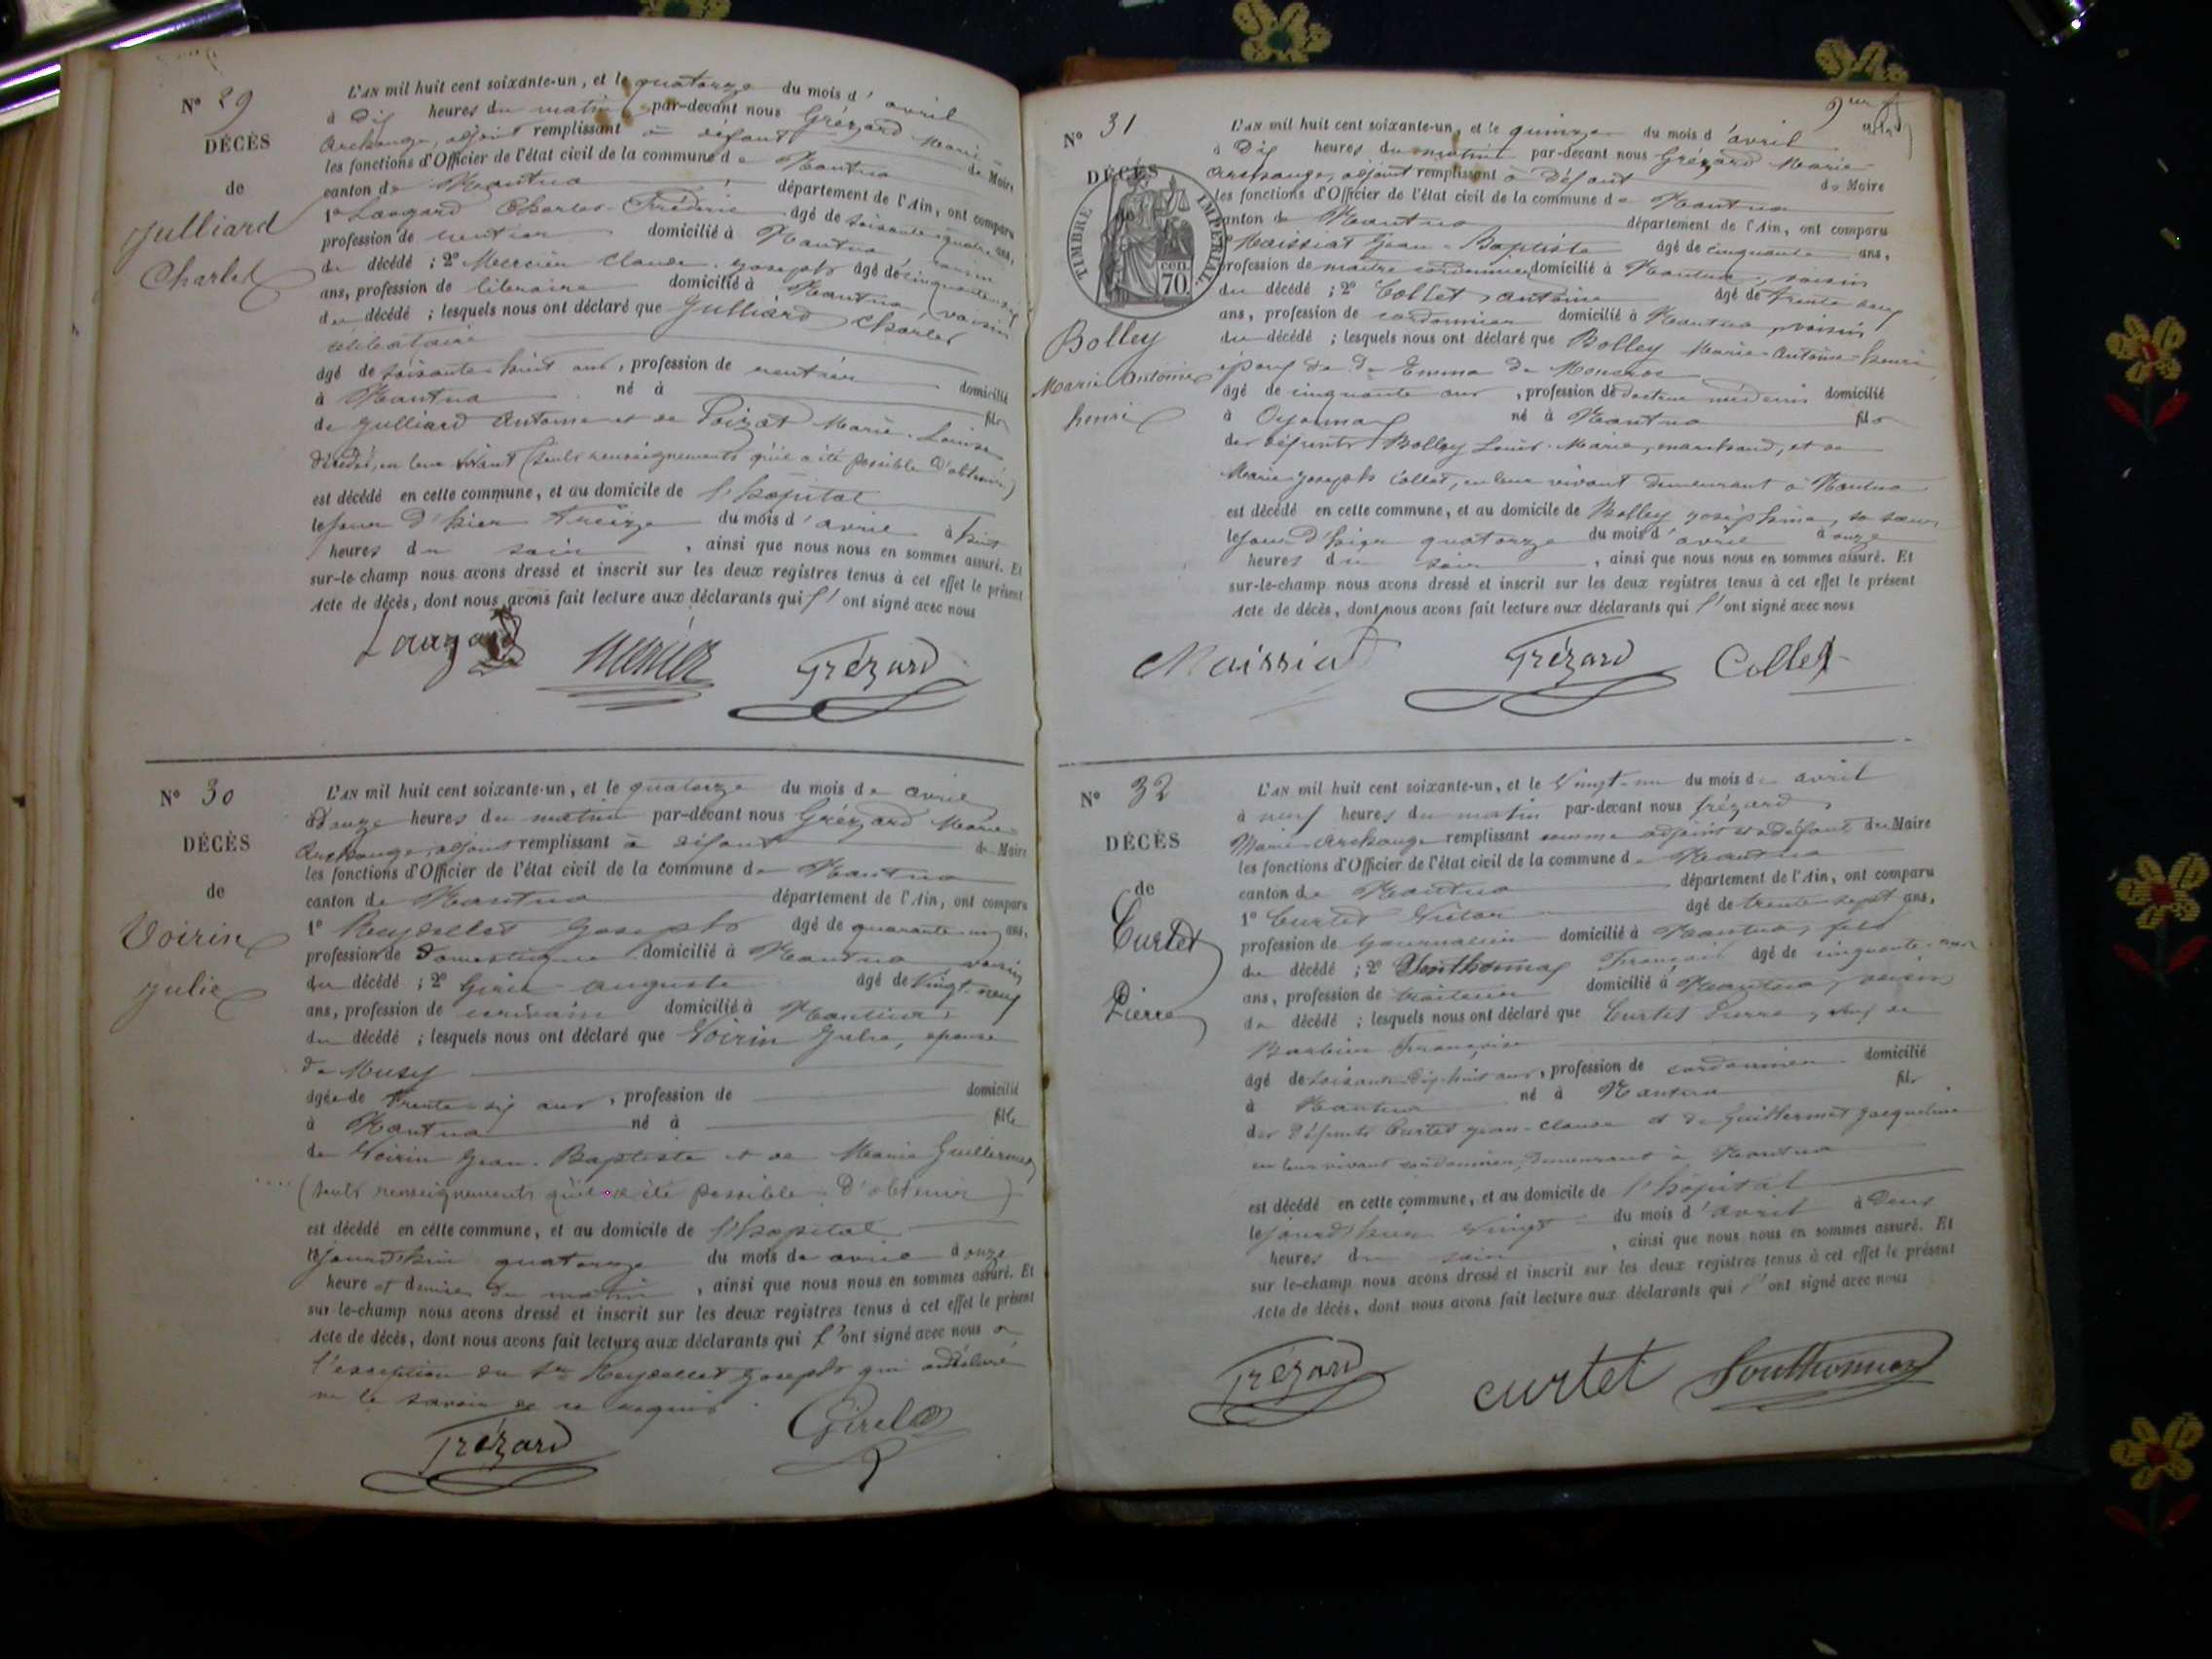 N° 29
DÉCÈS
de
Julliard
Charles
L'AN mil huit cent soixante-un, et le quatorze du mois d' avril
à dix heures du matin par-devant nous Grézard Marie
Archange, adjoint remplissant à défaut de Maire
les fonctions d'Officier de l'état civil de la commune de Nantua
canton de Nantua, département de l'Ain, ont comparu
1° Laugard Charles-Fréderic âgé de soixante-quatre ans,
profession de rentier domicilié à Nantua voisin
du décédé ; 2° Mercier Claude Joseph âgé de cinquante
ans, profession de libraire domicilié à Nantua voisin
du décédé ; lesquels nous ont déclaré que Julliard Charles
célibataire
âgé de soixante-huit ans, profession de rentier domicilié
à Nantua né à fils
de Julliard Antoine et de Poizat Marie-Louise
décédés, en leur vivant (seuls renseignements qu'il a été possible d'obtenir)
est décédé en cette commune, et au domicile de l'hôpital
le jour d'hier treize du mois d' avril à huit
heures du soir, ainsi que nous nous en sommes assuré. Et
sur-le-champ nous avons dressé et inscrit sur les deux registres tenus à cet effet le présent
Acte de décès, dont nous avons fait lecture aux déclarants qui l'ont signé avec nous
Laugard Mercier Grézard
N° 30
DÉCÈS
de
Voirin
Julie
L'AN mil huit cent soixante-un, et le quatorze du mois de avril
à douze heures du matin par-devant nous Grézard Marie
Archange, adjoint remplissant à défaut de Maire
les fonctions d'Officier de l'état civil de la commune de Nantua
canton de Nantua département de l'Ain, ont comparu
1° Reydellet Joseph âgé de quarante-un ans,
profession de domestique domicilié à Nantua voisin
du décédé ; 2° Girel Auguste âgé de vingt-neuf
ans, profession de écrivain domicilié à Nantua
du décédé ; lesquels nous ont déclaré que Voirin Julie, épouse
de Musy
âgée de trente-six ans, profession de domicilié
à Nantua né à fille
de Voirin Jean-Baptiste et de Marie Guillermet
(seuls renseignements qu'il a été possible d'obtenir)
est décédé en cette commune, et au domicile de l'hôpital
le jourd'hui quatorze du mois de avril à onze
heure et demie du matin, ainsi que nous nous en sommes assuré. Et
sur-le-champ nous avons dressé et inscrit sur les deux registres tenus à cet effet le présent
Acte de décès, dont nous avons fait lecture aux déclarants qui l'ont signé avec nous à
l'exception du Sr Reydellet Joseph qui a déclaré
ne le savoir de ce requis
Grézard Girel
N° 31
DÉCÈS
TIMBRE IMPÉRIAL
70 cen.
Bolley
Marie Antoine
henri
L'AN mil huit cent soixante-un, et le quinze du mois d'avril
à dix heures du matin par-devant nous Grézard Marie
Archange, adjoint remplissant à défaut de Maire
les fonctions d'Officier de l'état civil de la commune de Nantua
canton de Nantua département de l'Ain, ont comparu
1° Maissiat Jean-Baptiste âgé de cinquante ans,
profession de maître cordonnier domicilié à Nantua, voisin
du décédé ; 2° Collet Antoine âgé de trente neuf
ans, profession de cordonnier domicilié à Nantua, voisin
du décédé ; lesquels nous ont déclaré que Bolley Marie-Antoine-henri
époux de De Emma de
âgé de cinquante ans, profession de docteur médecin domicilié
à Oyonnax né à Nantua fils
des défunts Bolley Louis-Marie, marchand, et de
Marie Josephe Collet, en leur vivant demeurant à Nantua
est décédé en cette commune, et au domicile de Bolley Joséphine, sa sœur
le jour d'hier quatorze du mois d' avril à onze
heures du soir, ainsi que nous nous en sommes assuré. Et
sur-le-champ nous avons dressé et inscrit sur les deux registres tenus à cet effet le présent
Acte de décès, dont nous avons fait lecture aux déclarants qui l'ont signé avec nous
Maissiat Grézard Collet
N° 32
DÉCÈS
de
Curtet
Pierre
L'AN mil huit cent soixante-un, et le vingt-un du mois de avril
à neuf heures du matin par-devant nous Grézard
Marie-Archange remplissant comme adjoint et à défaut du Maire
les fonctions d'Officier de l'état civil de la commune de Nantua
canton de Nantua département de l'Ain, ont comparu
1° Curtet Victor âgé de trente-sept ans,
profession de journalier domicilié à Nantua, fils
du décédé ; 2° Southonnax François âgé de cinquante
ans, profession de traiteur domicilié à Nantua, voisin
du décédé ; lesquels nous ont déclaré que Curtet Pierre, veuf de
Barbier Françoise
âgé de soixante-dix-huit ans, profession de cordonnier domicilié
à Nantua né à Nantua fils
des défunts Curtet Jean-Claude et de Guillermet Jacqueline
en leur vivant cordonnier, demeurant à Nantua
est décédé en cette commune, et au domicile de l'hôpital
le jour d'hier vingt du mois d'avril à deux
heures du soir, ainsi que nous nous en sommes assuré. Et
sur-le-champ nous avons dressé et inscrit sur les deux registres tenus à cet effet le présent
Acte de décès, dont nous avons fait lecture aux déclarants qui l'ont signé avec nous
Grézard curtet Southonnax